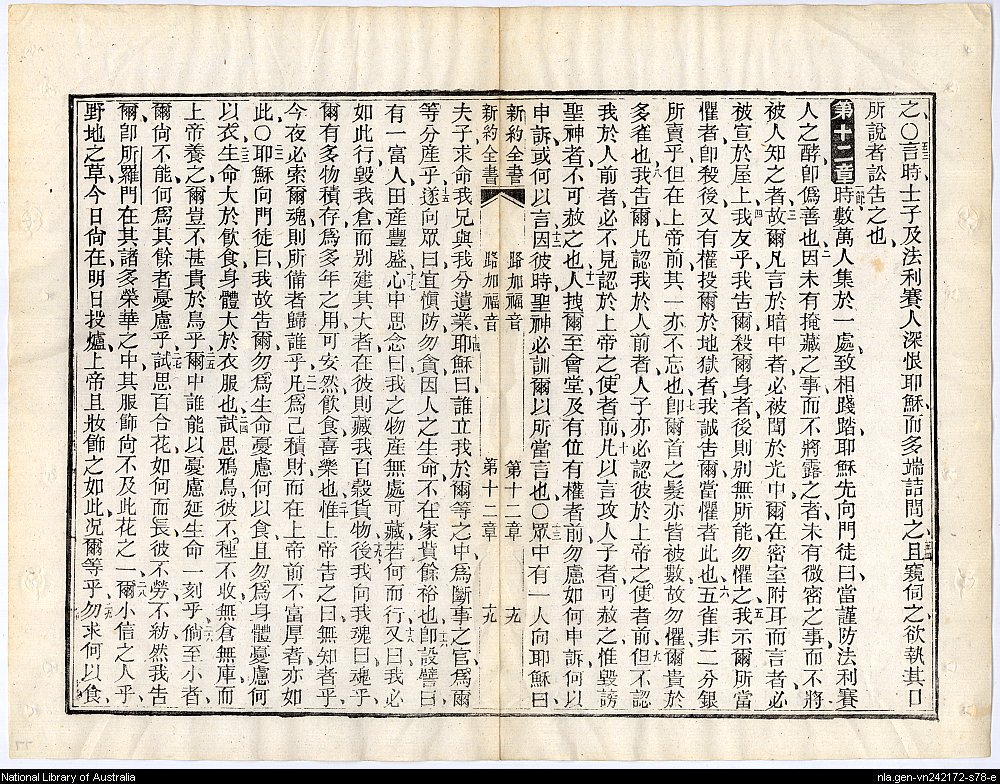 之〇言時士子及法利賽人深恨耶穌而多端詰問之且窺伺之欲執其口
所說者訟告之也
第十二章時數萬人集於一處致相踐踏耶穌先向門徒曰當謹防法利賽
人之酵卽僞善也因未有掩藏之事而不將露之者未有微密之事而不將
被人知之者故爾凡言於暗中者必被聞於光中爾在密室附耳而言者必
被宣於屋上我友乎我告爾殺爾身者後則別無所能勿懼之我示爾所當
懼者卽殺後又有權投爾於地獄者我誠告爾當懼者此也五雀非二分銀
所賣乎但在上帝前其一亦不忘也卽爾首之髮亦皆被數故勿懼爾貴於
多雀也我告爾凡認我於人前者人子亦必認彼於上帝之使者前但不認
我於人前者必不見認於上帝之使者前凡以言攻人子者可赦之惟毀謗
聖神者不可赦之也人拽爾至會堂及有位有權者前勿慮如何申訴何以
申訴或何以言因彼時聖神必訓爾以所當言也〇眾中有一人向耶穌曰
新約全書 路加福音 第十二章 十九
新約全書 路加福音 第十二章 十九
夫子求命我兄與我分遺業耶穌曰誰立我於爾等之中爲斷事之官爲爾
等分産乎遂向眾曰宜愼防勿貪因人之生命不在家貲餘裕也卽設譬曰
有一富人田産豐盛心中思念曰我之物産無處可藏若何而行又曰我必
如此行毀我倉而別建其大者在彼則藏我百穀貨物後我向我魂曰魂乎
爾有多物積存爲多年之用可安然飮食喜樂也惟上帝告之曰無知者乎
今夜必索爾魂則所備者歸誰乎凡爲己積財而在上帝前不富厚者亦如
此〇耶穌向門徒曰我故告爾勿爲生命憂慮何以食且勿爲身體憂慮何
以衣生命大於飮食身體大於衣服也試思鴉鳥彼不種不收無倉無庫而
上帝養之爾豈不甚貴於鳥乎爾中誰能以憂慮延生命一刻乎倘至小者
爾尙不能何爲其餘者憂慮乎試思百合花如何而長彼不勞不紡然我告
爾卽所羅門在其諸多榮華之中其服飾尙不及此花之一爾小信之人乎
野地之草今日尙在明日投爐上帝且妝飾之如此况爾等乎勿求何以食
National Library of Australia
nla.gen-vn242172-s78-e